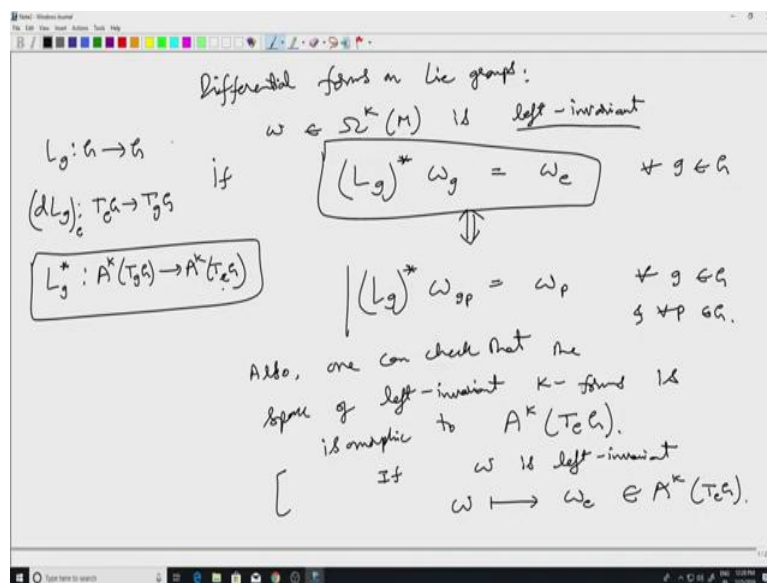 Note2 - Windows Journal
File Edit View Insert Actions Tools Help
Differential forms on Lie groups:
ω ∈ Ω^k (M) is left-invariant
if (L_g)^* ω_g = ω_e ∀ g ∈ G
L_g : G → G
(dL_g)_e : T_eG → T_gG
L_g^* : A^k(T_gG) → A^k(T_eG)
⇕
(L_g)^* ω_gp = ω_p ∀ g ∈ G
& ∀ p ∈ G.
Also, one can check that the
space of left-invariant k-forms is
isomorphic to A^k (T_eG).
[ If ω is left-invariant
ω ↦ ω_e ∈ A^k (T_eG).
Type here to search
ENG